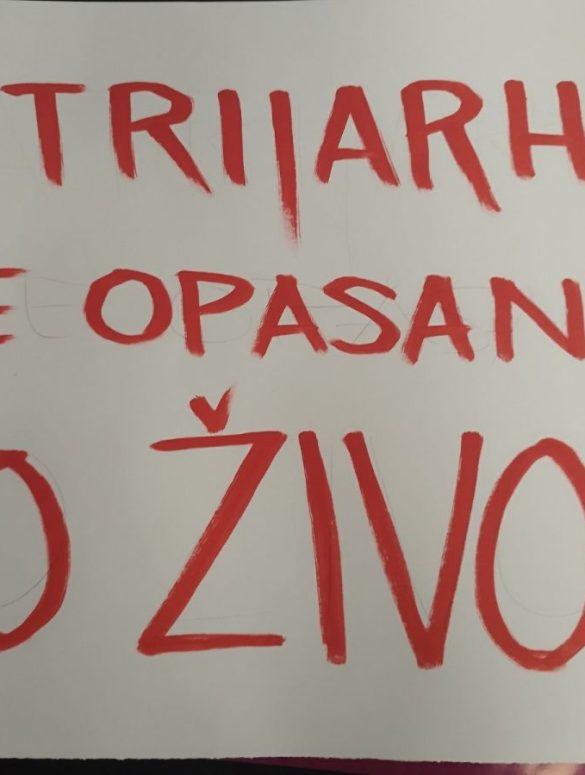 TRIJARH
E OPASAN
O ŽIVO